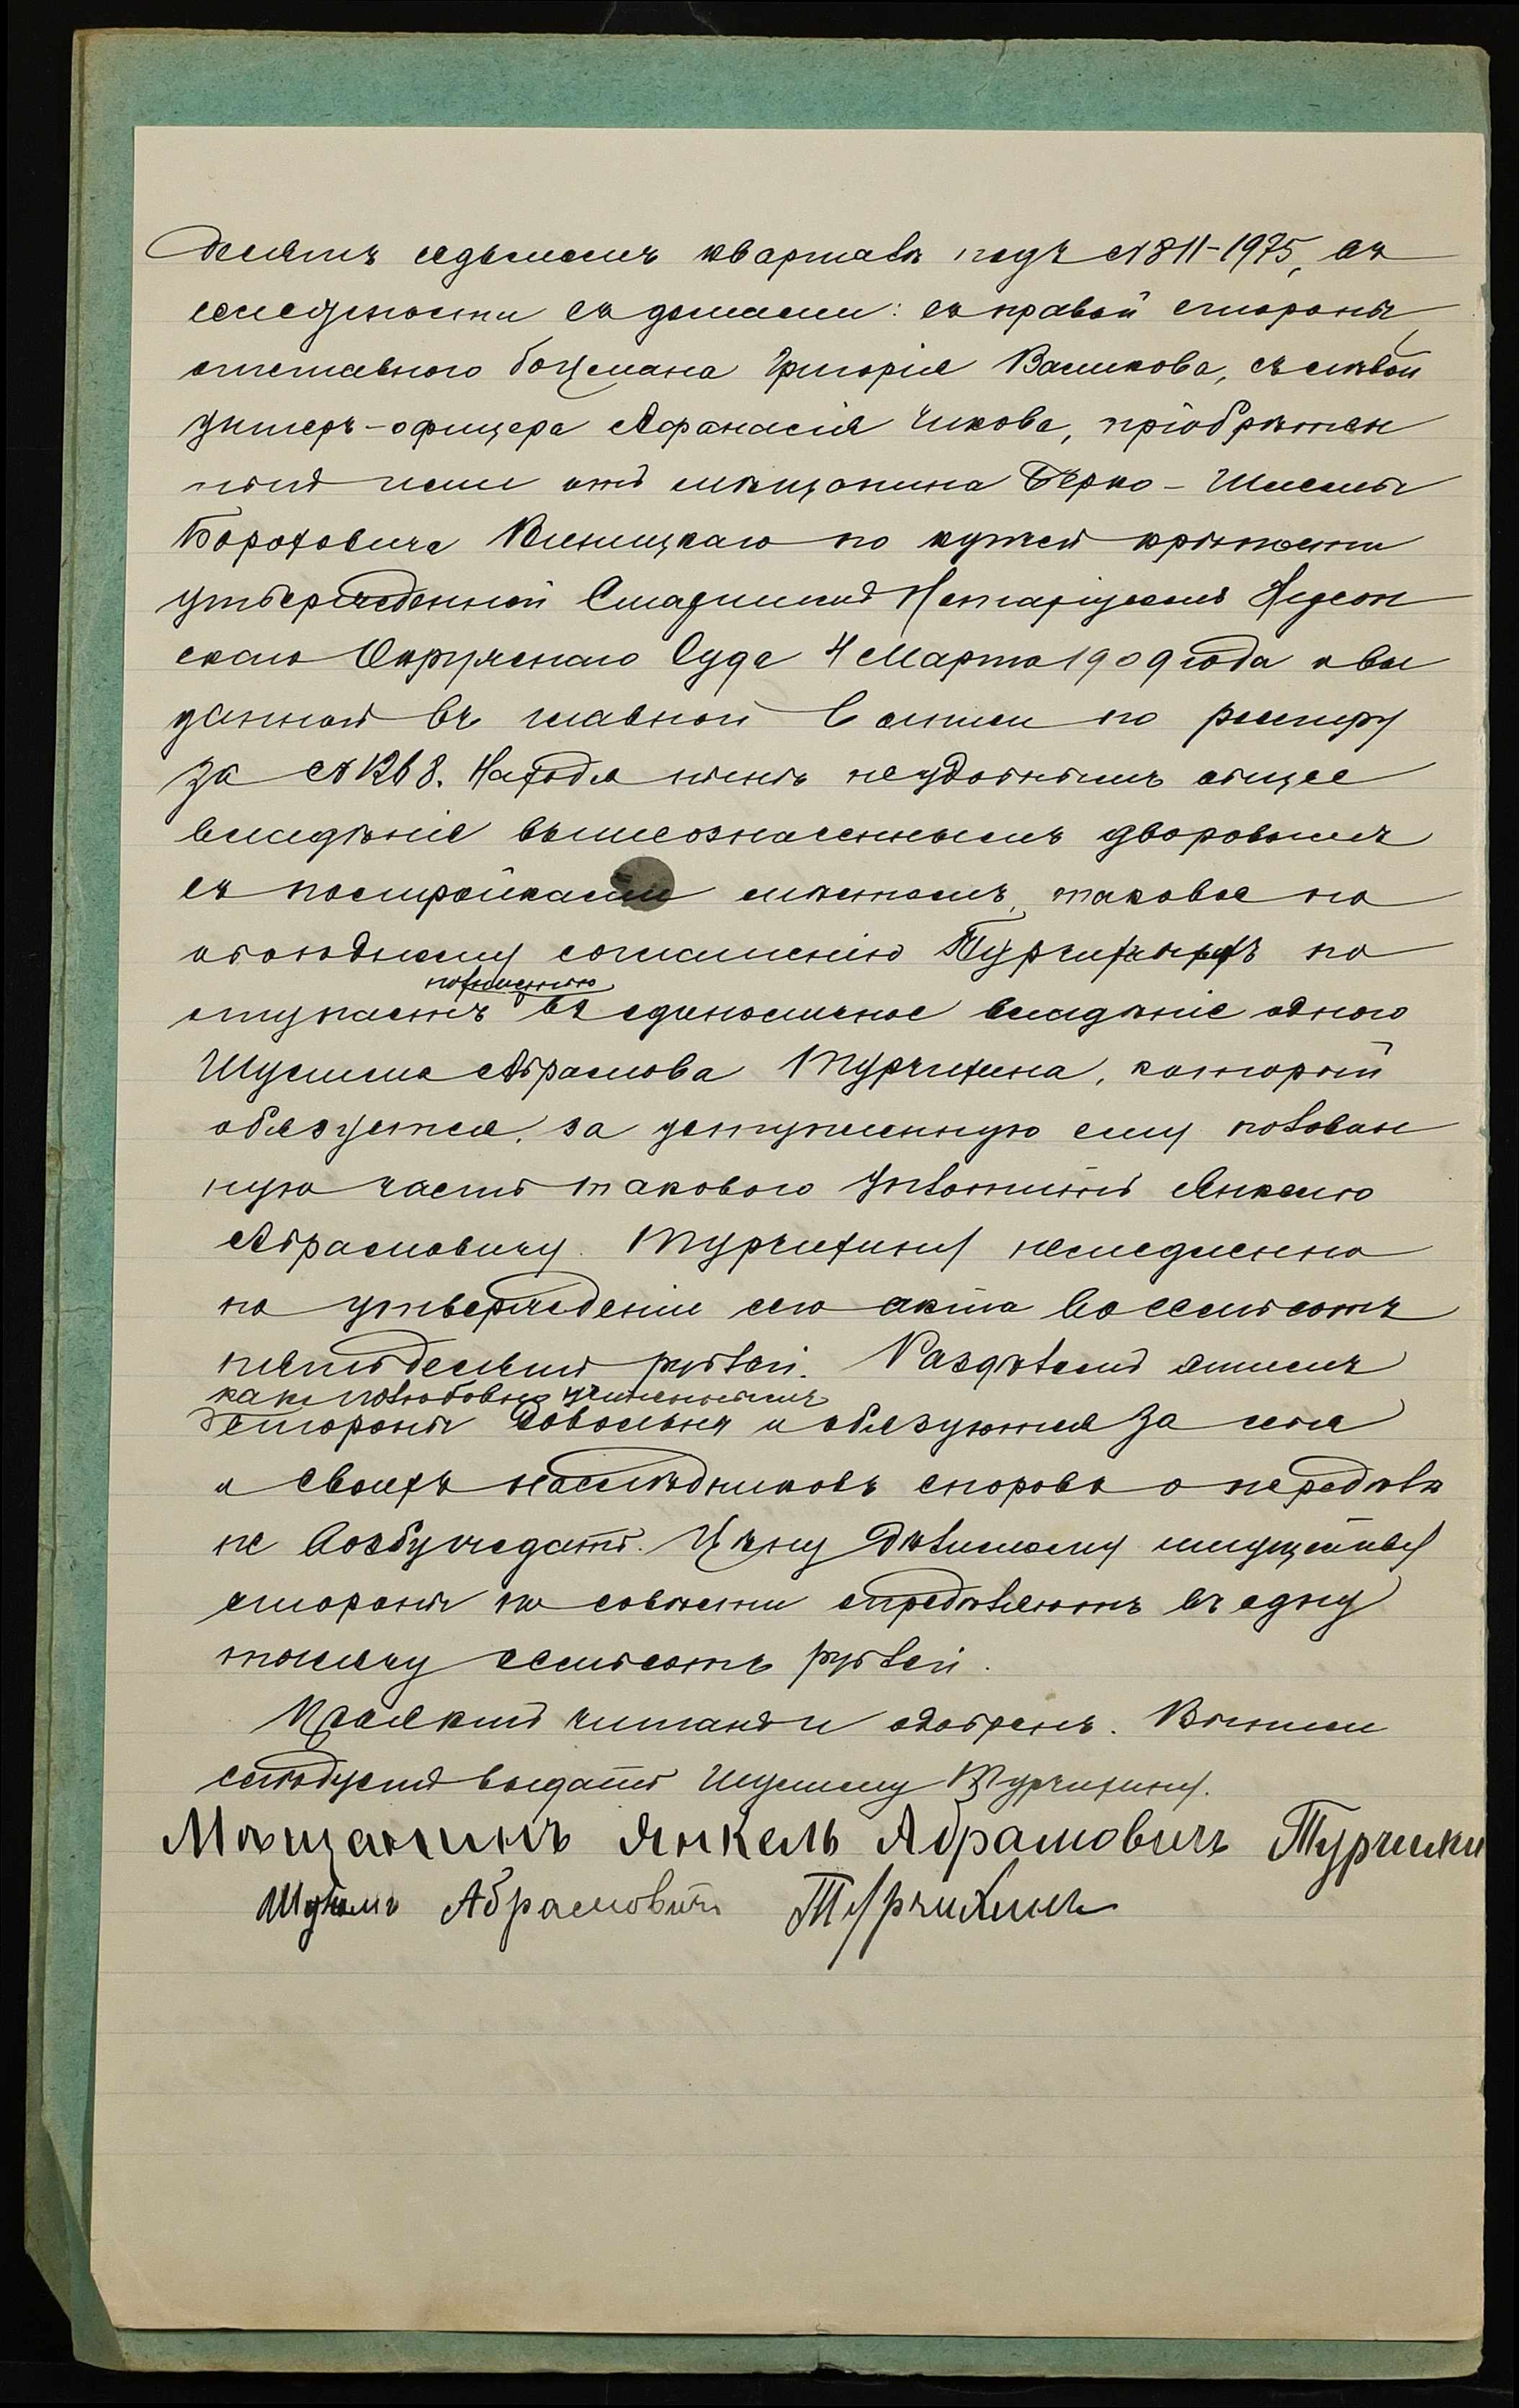 десятъ седьмомъ кварталѣ подъ № 811-1975, въ
смежности съ домами: съ правой стороны
отставного боцмана Григорія Васикова, съ лѣвой
унтеръ-офицера Афанасія Чикова, пріобрѣтен
ный ими отъ мѣщанина Берко-
Бороховича Виницкаго по купчей крѣпости
утвержденной Старшимъ Нотаріусомъ Херсон
скаго Окружнаго Суда 4 Марта 1909 года и вы
данной въ главной выписи по реестру
за № 1268. Находя нынѣ неудобнымъ общее
владѣніе вышеозначеннымъ дворовымъ
съ постройками мѣстомъ, таковое по
обоюдному соглашенію Турчихинъ по
ступаетъ полностью въ единоличное владѣніе одного
Шулима Абрамова Турчихина, который
обязуется, за уступленную ему половин
ную часть такового уплотить Янкелю
Абрамовичу Турчихину немедленно
по утвержденіи сего акта восемьсотъ
пятьдесятъ рублей. Раздѣломъ этимъ
какъ полюбовно учиненнымъ
стороны довольны и обязуются за себя
и своихъ наслѣдниковъ споровъ о передѣлѣ
не возбуждать. Цѣну дѣлимому имуществу
стороны по совѣсти опредѣляютъ въ одну
тысячу семьсотъ рублей.
Проэктъ читанъ и одобренъ. Выпись
слѣдуетъ выдать Шулиму Турчихину.
Мѣщанинъ Янкель Абрамовичъ
Шулимъ Абрамовичъ Турчихинъ